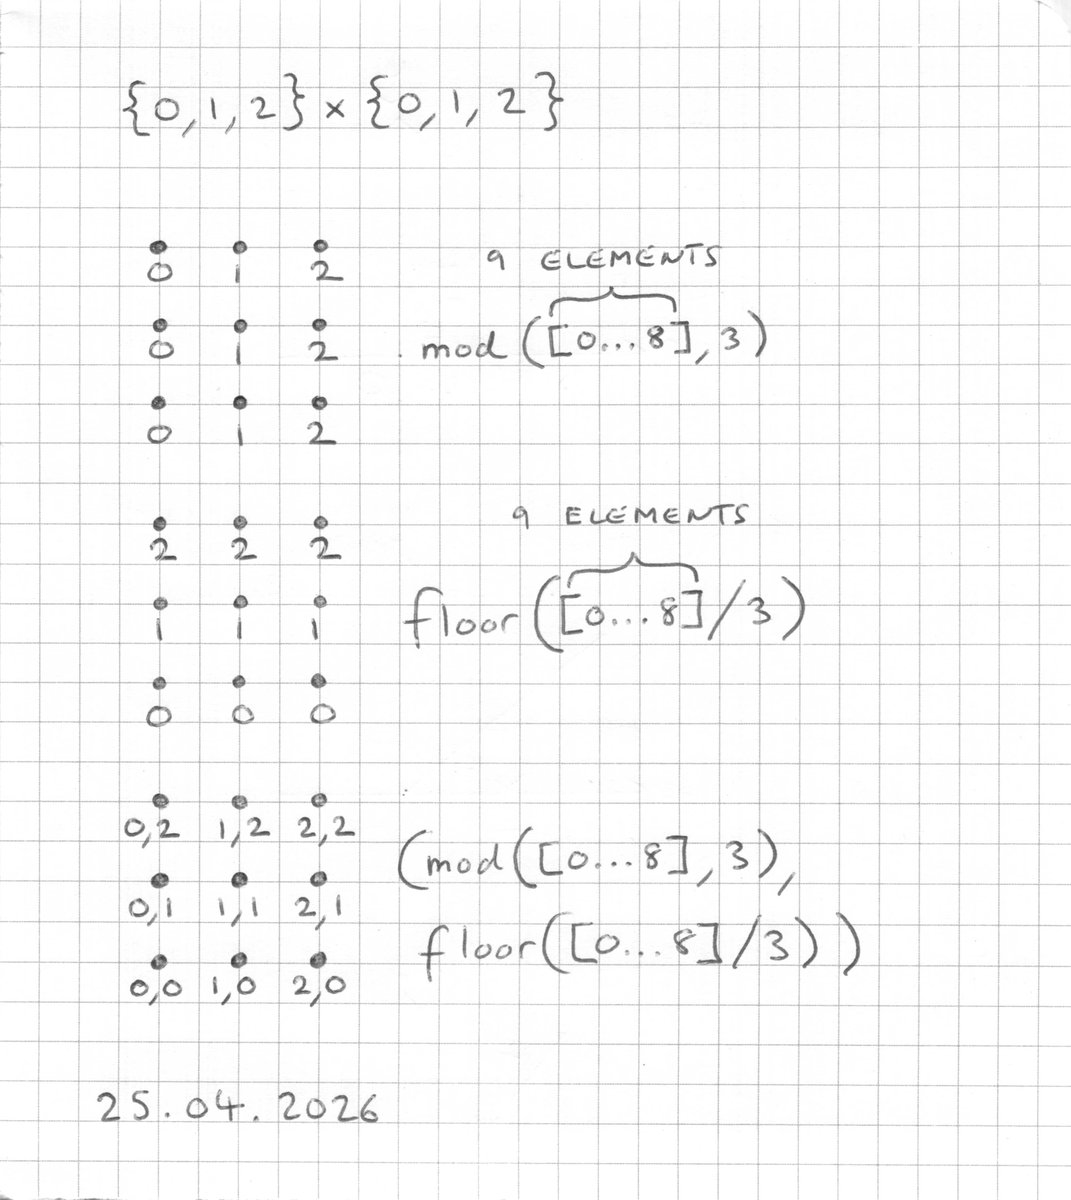 {0,1,2}×{0,1,2}
0 1 2
9 ELEMENTS
0 1 2
mod([0...8],3)
0 1 2
2 2 2
9 ELEMENTS
1 1 1
floor([0...8]/3)
0 0 0
0,2 1,2 2,2
(mod([0...8],3),
0,1 1,1 2,1
floor([0...8]/3))
0,0 1,0 2,0
25.04.2026